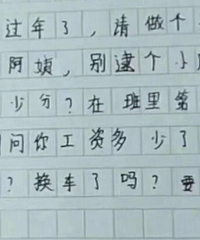 过年了，请做个
阿姨，别逮个小
少分？在班里第
问你工资多少了
？换车了吗？要